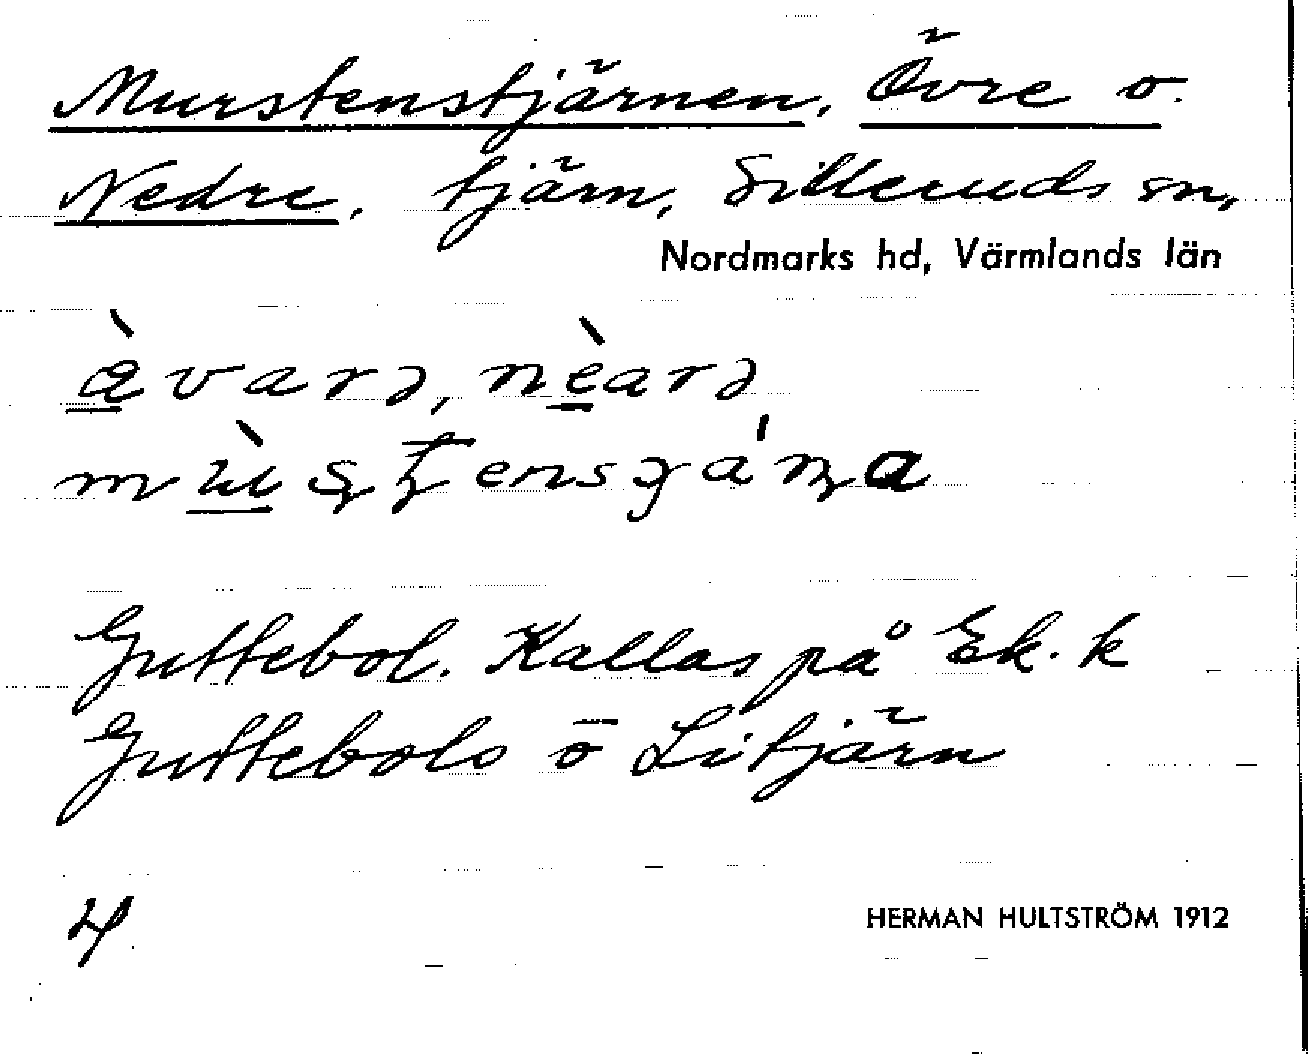 Murstenstjärnen, Övre o.
Nedre, tjärn, Silleruds sn,
Nordmarks hd, Värmlands län
Guttebol. Kallas på Ek. k
Guttebols ö Litjärn
4
HERMAN HULTSTRÖM 1912